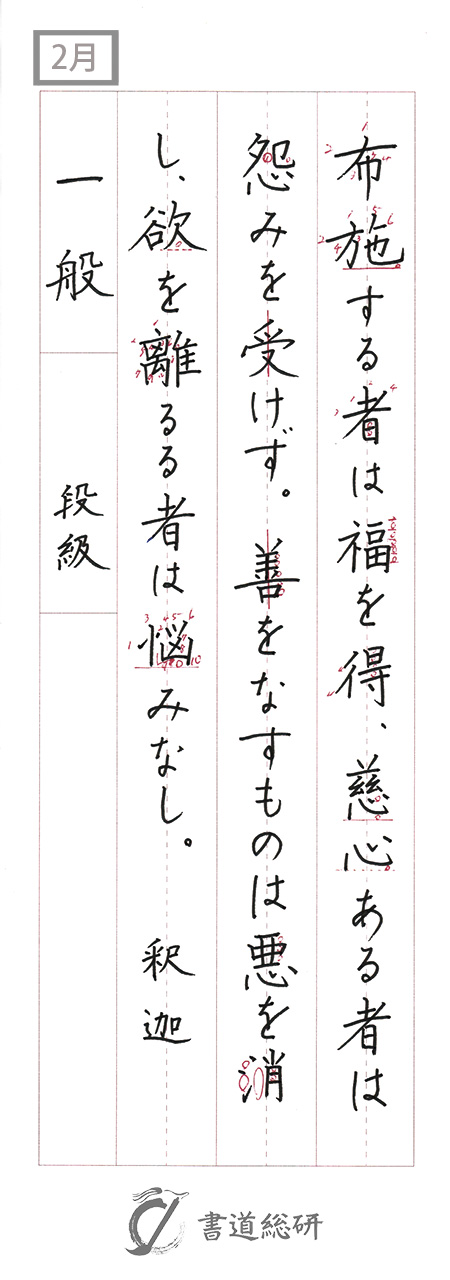 2月
布施する者は福を得、慈心ある者は
怨みを受けず。善をなすものは悪を消
し、欲を離るる者は悩みなし。 釈迦
一般
段級
書道総研